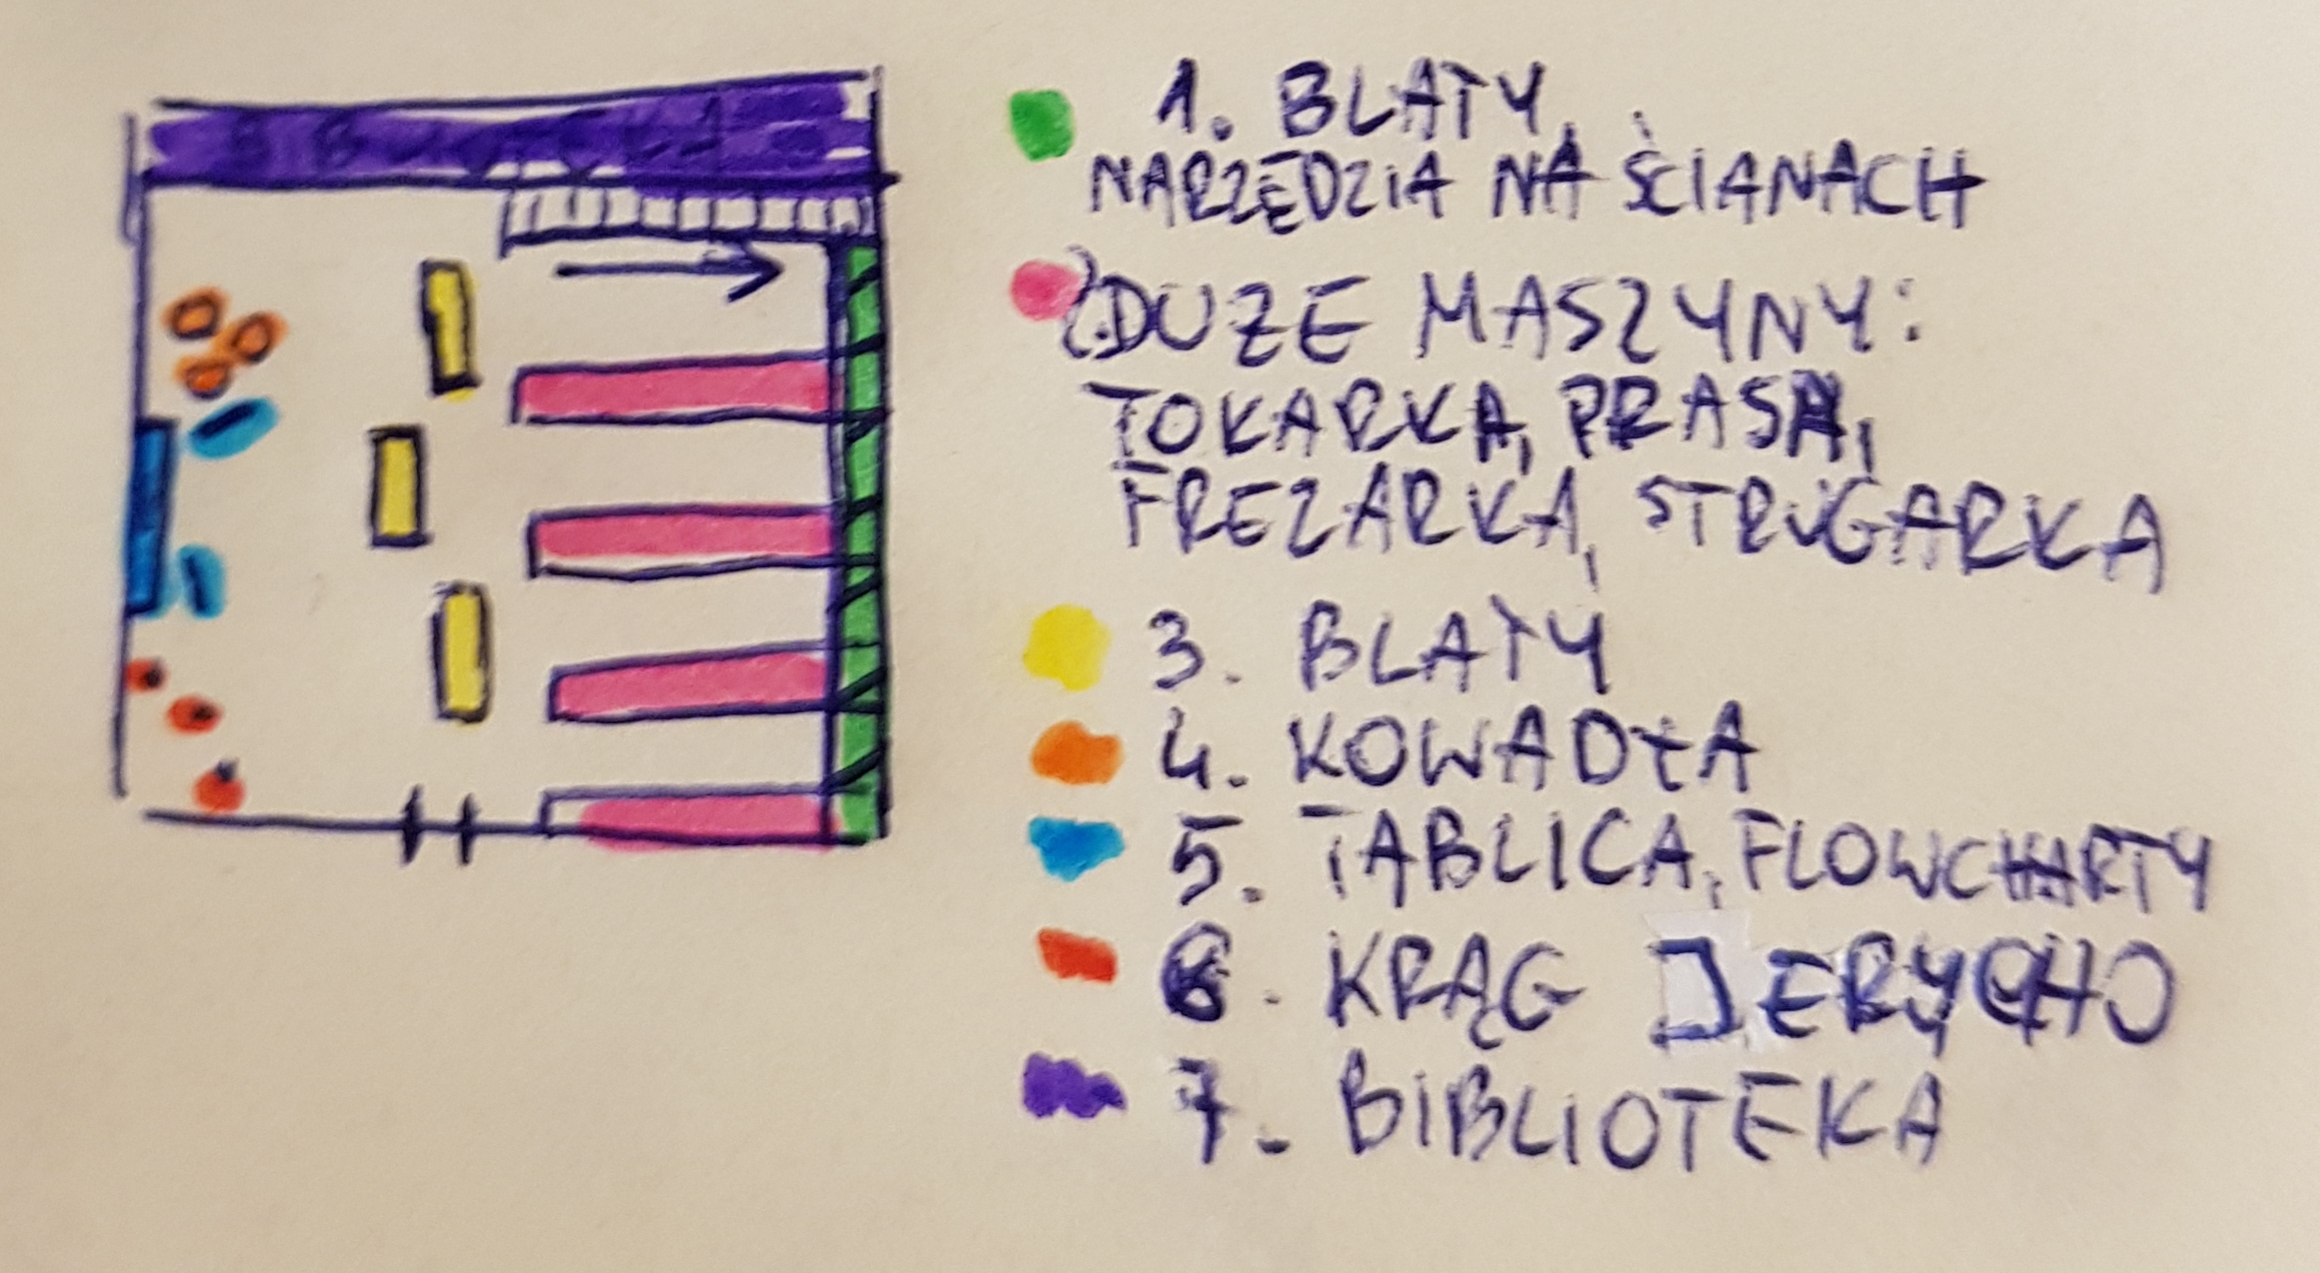 1. BLATY,
NARZĘDZIA NA ŚCIANACH
2. DUŻE MASZYNY:
TOKARKA, PRASA,
FREZARKA, STRUGARKA
3. BLATY
4. KOWADŁA
5. TABLICA, FLOWCHARTY
6. KRĄG JERYCHO
7. BIBLIOTEKA